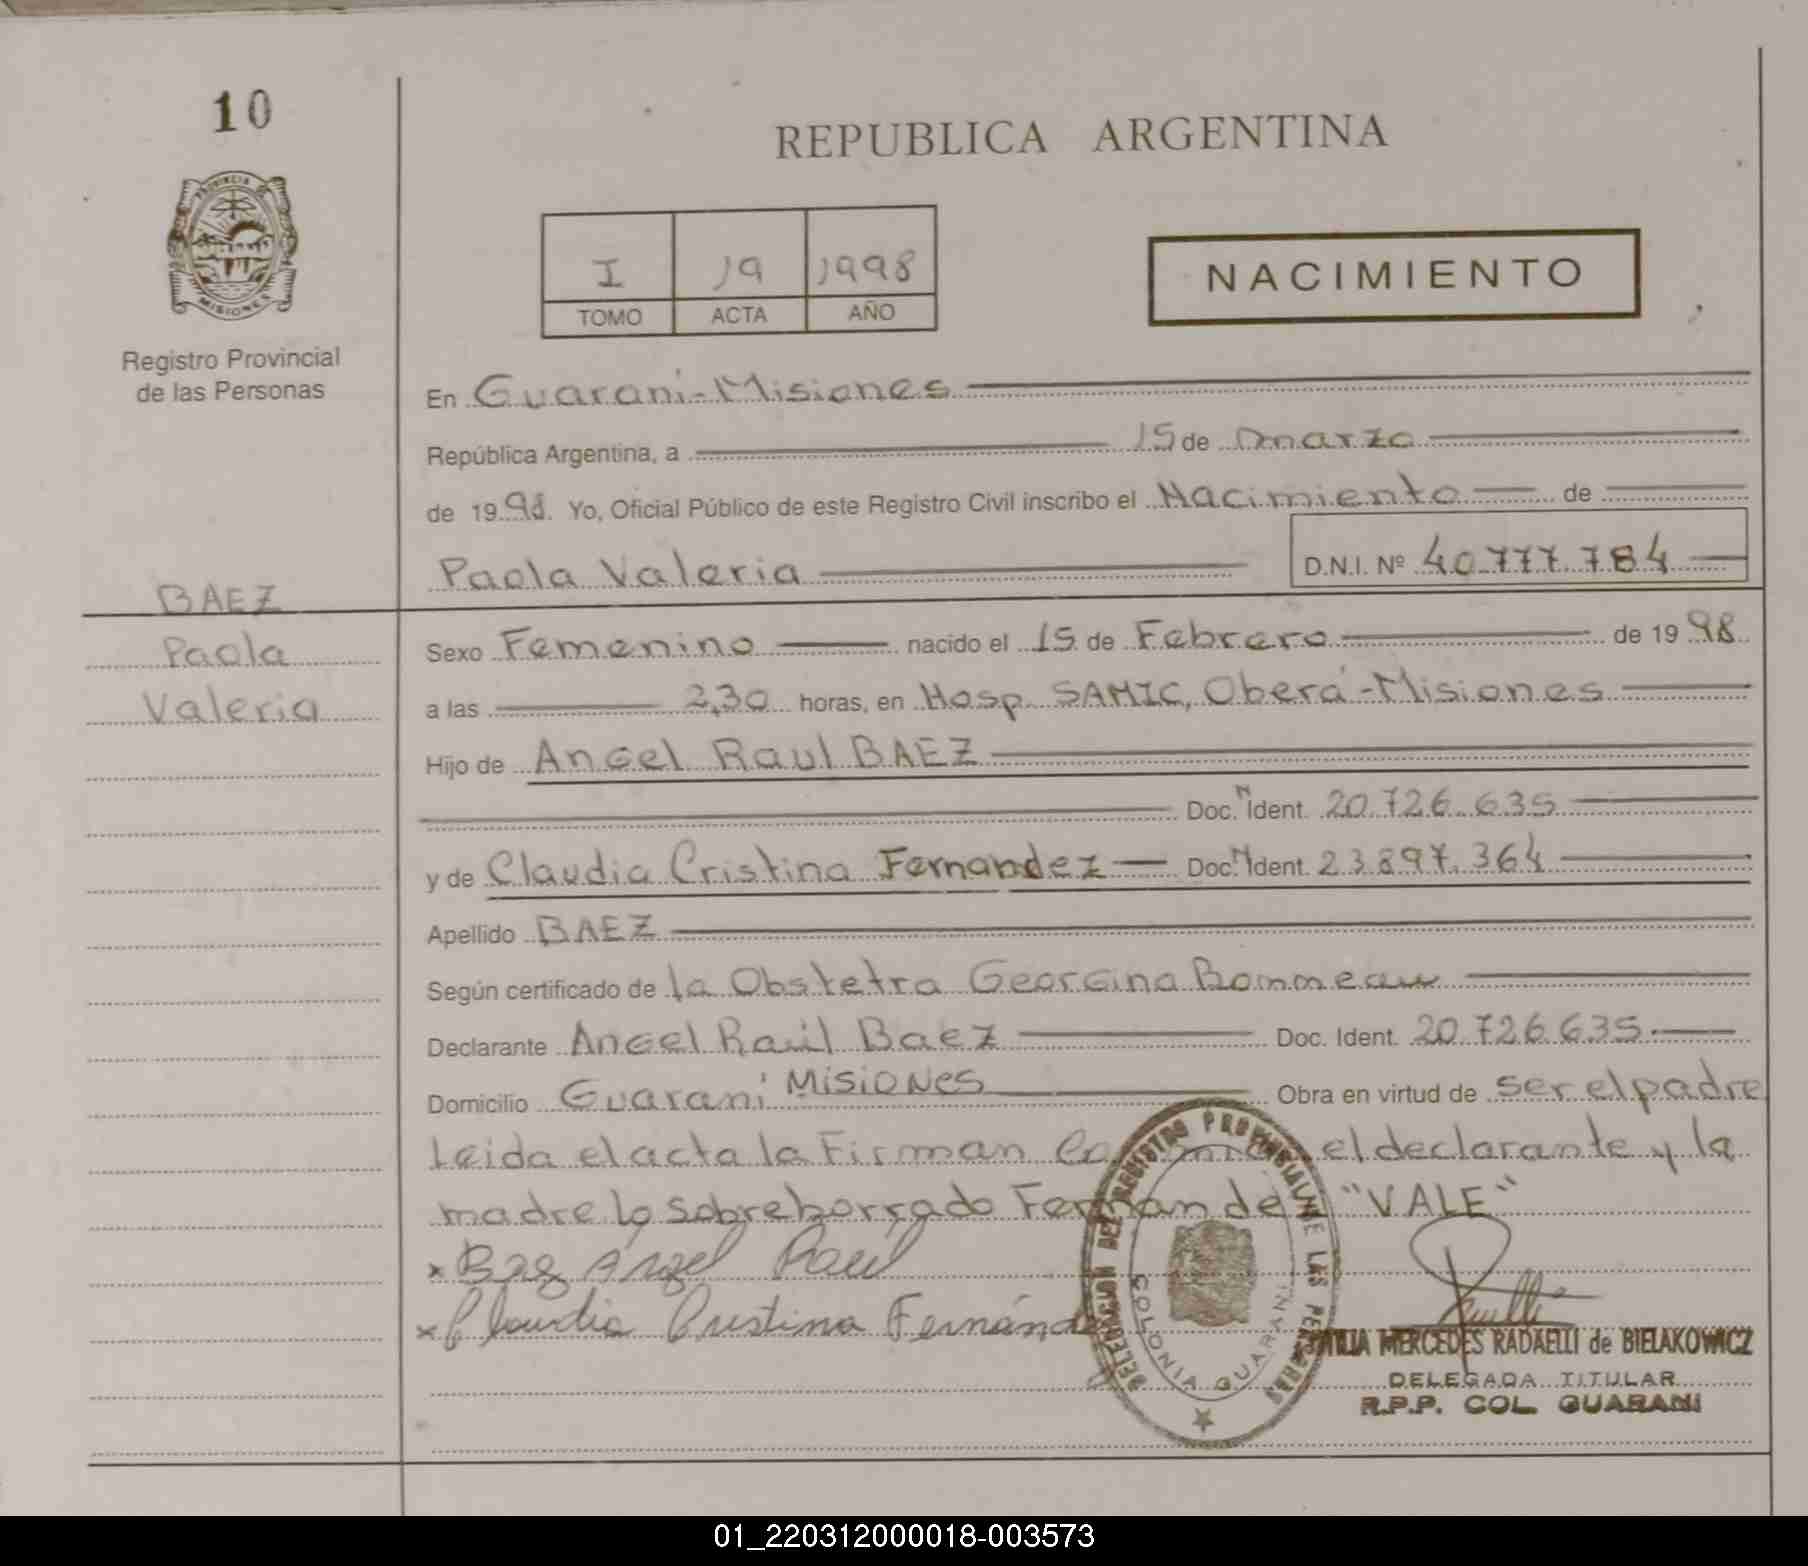 10
PROVINCIA DE
MISIONES
Registro Provincial
de las Personas
BAEZ
Paola
Valeria
REPUBLICA ARGENTINA
I 19 1998
TOMO ACTA AÑO
NACIMIENTO
En Guaraní-Misiones
República Argentina, a 15 de marzo
de 1998. Yo, Oficial Público de este Registro Civil inscribo el Nacimiento de
Paola Valeria D.N.I. Nº 40.777.784
Sexo Femenino nacido el 15 de Febrero de 1998
a las 2,30 horas, en Hosp. SAMIC, Oberá-Misiones
Hijo de Angel Raul BAEZ
Doc. N Ident. 20.726.635
y de Claudia Cristina Fernandez Doc. N Ident. 23.897.364
Apellido BAEZ
Según certificado de la Obstetra Georgina
Declarante Angel Raúl Baez Doc. Ident. 20.726.635
Domicilio Guaraní Misiones Obra en virtud de ser el padre
Leida el acta la Firman el declarante y la
madre lo sobreborrado Fernandez "VALE"
x Angel Raul
x Claudia Cristina Fernánd
DELEGACION DEL REGISTRO PROVINCIAL DE LAS PERSONAS
COLONIA GUARANI
MERCEDES RADAELLI de BIELAKOWICZ
DELEGADA TITULAR
R.P.P. COL. GUARANI
01_220312000018-003573